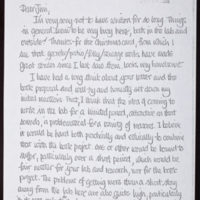 Dear Jim,
I'm very sorry not to have written for so long. Things
in general seem to be very busy here, both in the lab and
outside! Thanks for the Christmas card, from which I
see that
great strides since I last saw them.
I have had a long think about your letter and the
book proposal and will try and
initial reaction. First, I think that the idea of coming to
work in the lab for a limited period, attractive as that
sounds, is problematical for a variety of reasons. I believe
it would be hard both practically and ethically to combine
that with the book project one or other would be bound to
suffer, particularly over a short period, which would be
four months for your lab and research, not for the book
project. The problem of getting more than a short stay
away from the lab here are also quite high, particularly